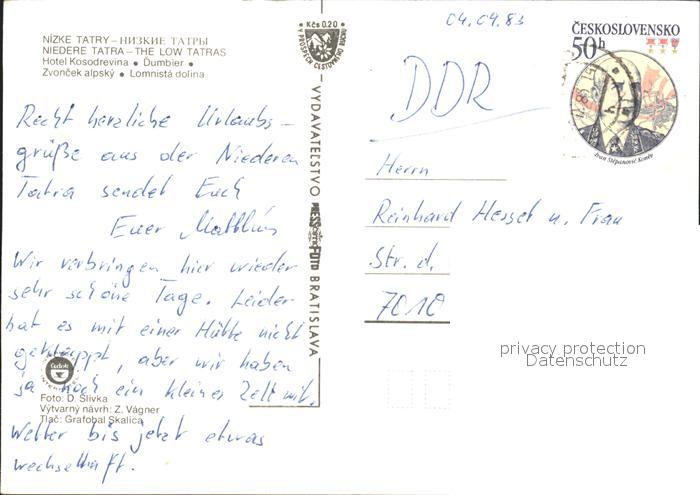 NÍZKE TATRY – НИЗКИЕ ТАТРЫ
NIEDERE TATRA – THE LOW TATRAS
Hotel Kosodrevina • Ďumbier •
Zvonček alpský • Lomnistá dolina
Recht herzliche Urlaubs-
grüße aus der Niederen
Tatra sendet Euch
Euer Matthias
Wir verbringen hier wieder
sehr schöne Tage. Leider
hat es mit einer Hütte nicht
geklappt, aber wir haben
ja noch ein kleines Zelt mit.
Wetter bis jetzt etwas
wechselhaft.
Foto: D. Slivka
Výtvarný návrh: Z. Vágner
Tlač: Grafobal Skalica
Kčs 0.20
V PROSPECH CESTOVNÉHO RUCHU
VYDAVATEĽSTVO PRESSFOTO BRATISLAVA
04.09.83
ČESKOSLOVENSKO
50h
Ivan Stěpanovič Koněv
DDR
Herrn
Reinhard Hessel u. Frau
Str. d.
7010
privacy protection
Datenschutz